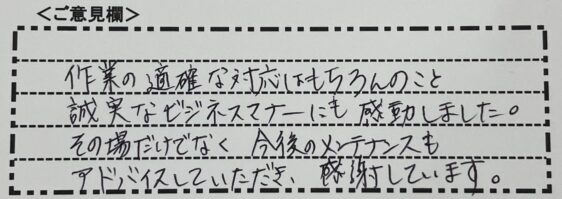 ＜ご意見欄＞
作業の適確な対応はもちろんのこと
誠実なビジネスマナーにも感動しました。
その場だけでなく 今後のメンテナンスも
アドバイスしていただき、感謝しています。